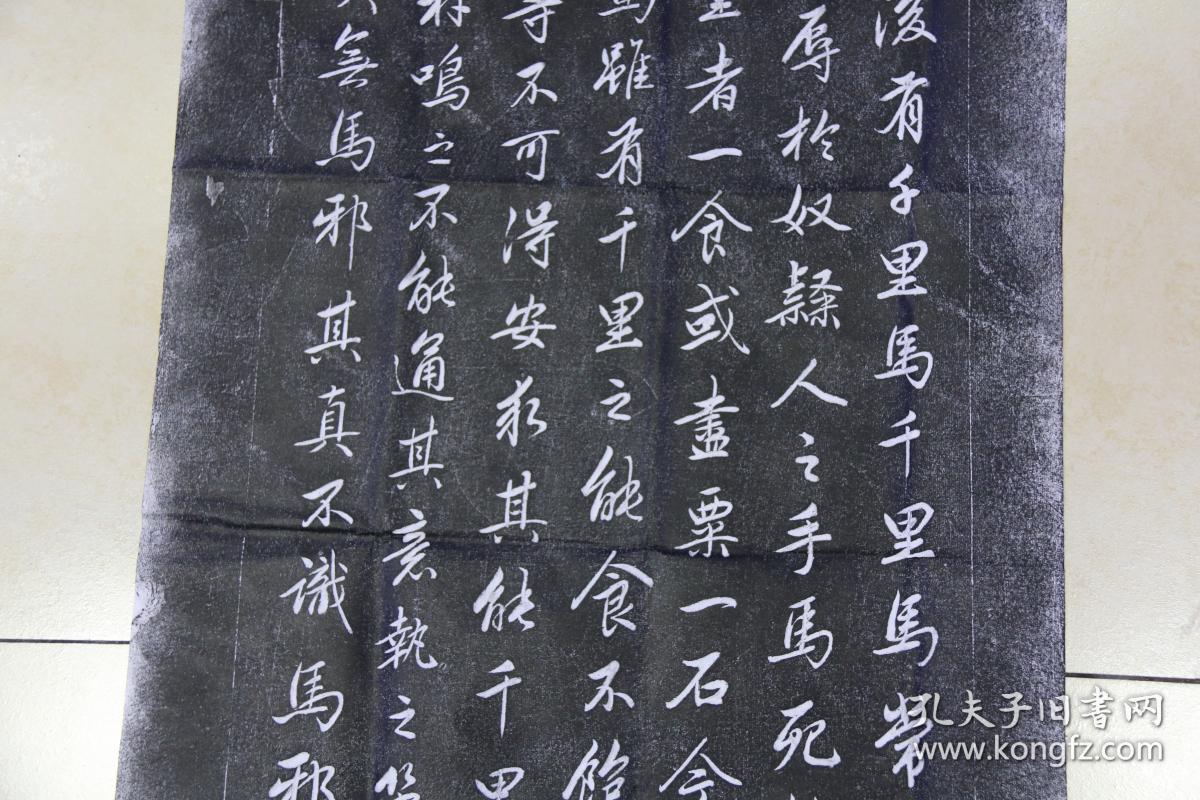 後有千里馬千里馬常
辱於奴隸人之手馬死
里者一食或盡粟一石今
馬雖有千里之能食不飽
等不可得安求其能千里
鳴之不能通其意執之策
無馬邪其真不識馬邪
孔夫子旧书网
www.kongfz.com